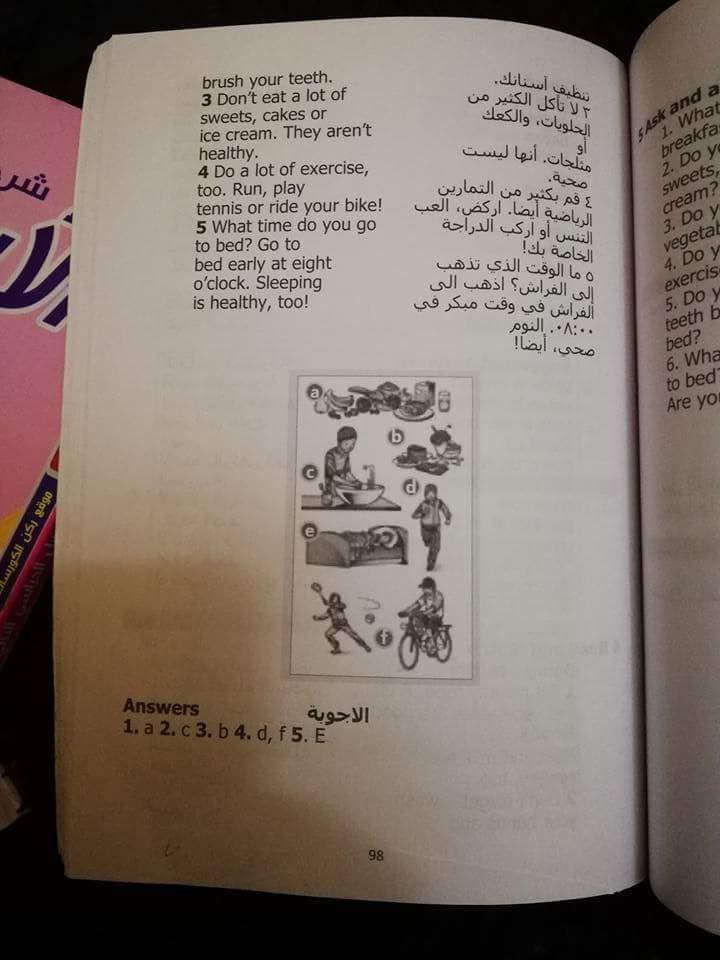 brush your teeth.
3 Don't eat a lot of
sweets, cakes or
ice cream. They aren't
healthy.
4 Do a lot of exercise,
too. Run, play
tennis or ride your bike!
5 What time do you go
to bed? Go to
bed early at eight
o'clock. Sleeping
is healthy, too!
تنظيف أسنانك.
٣ لا تأكل الكثير من
الحلويات، والكعك
أو
مثلجات. أنها ليست
صحية.
٤ قم بكثير من التمارين
الرياضية أيضا. اركض، العب
التنس أو اركب الدراجة
الخاصة بك!
٥ ما الوقت الذي تذهب
إلى الفراش؟ اذهب الى
الفراش في وقت مبكر في
٠٨:٠٠. النوم
صحي، أيضا!
a
b
c
d
e
f
Answers الاجوبة
1. a 2. c 3. b 4. d, f 5. E
98
5 Ask and a
1. What
breakfa
2. Do yo
sweets,
cream?
3. Do y
vegetab
4. Do y
exercis
5. Do y
teeth b
bed?
6. Wha
to bed?
Are you
شر
موقع ركن الكورسات